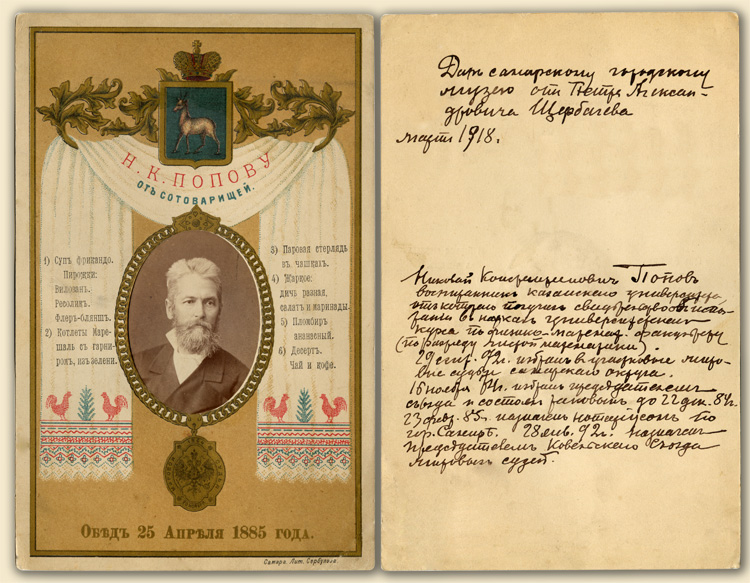 Н. К. ПОПОВУ
ОТЪ СОТОВАРИЩЕЙ.
1) Супъ фрикандо.
Пирожки:
Вилованъ.
Ресоликъ.
Флеръ-бляншъ.
2) Котлеты Маре-
шаль съ гарни-
ромъ, иъ зелени.
3) Паровая стерлядь
въ чашкахъ.
4) Жаркое:
дичь разная,
салатъ и маринады.
5) Пломбиръ
ананасный.
6) Десертъ.
Чай и кофе.
Обѣдъ 25 Апрѣля 1885 года.
Самара. Лит.
Даръ самарскому городскому
музею отъ Петра Алексан-
дровича Щербачева
мартъ 1918.
Николай Константиновичъ Поповъ
воспитанникъ казанскаго университета,
отъ котораго получилъ свидѣтельство
университетскаго
курса по физико-математ. факультету
(по разряду математики).
избранъ въ участковые миро-
вые судьи самарскаго округа.
16 ноября избранъ предсѣдателемъ
съѣзда и состоялъ таковымъ до 22 дек. 84 г.
23 фев. 85. назначенъ нотаріусомъ по
гор. Самарѣ. 28 янв. 92 г. назначенъ
предсѣдателемъ Ковенскаго Съѣзда
мировыхъ судей.